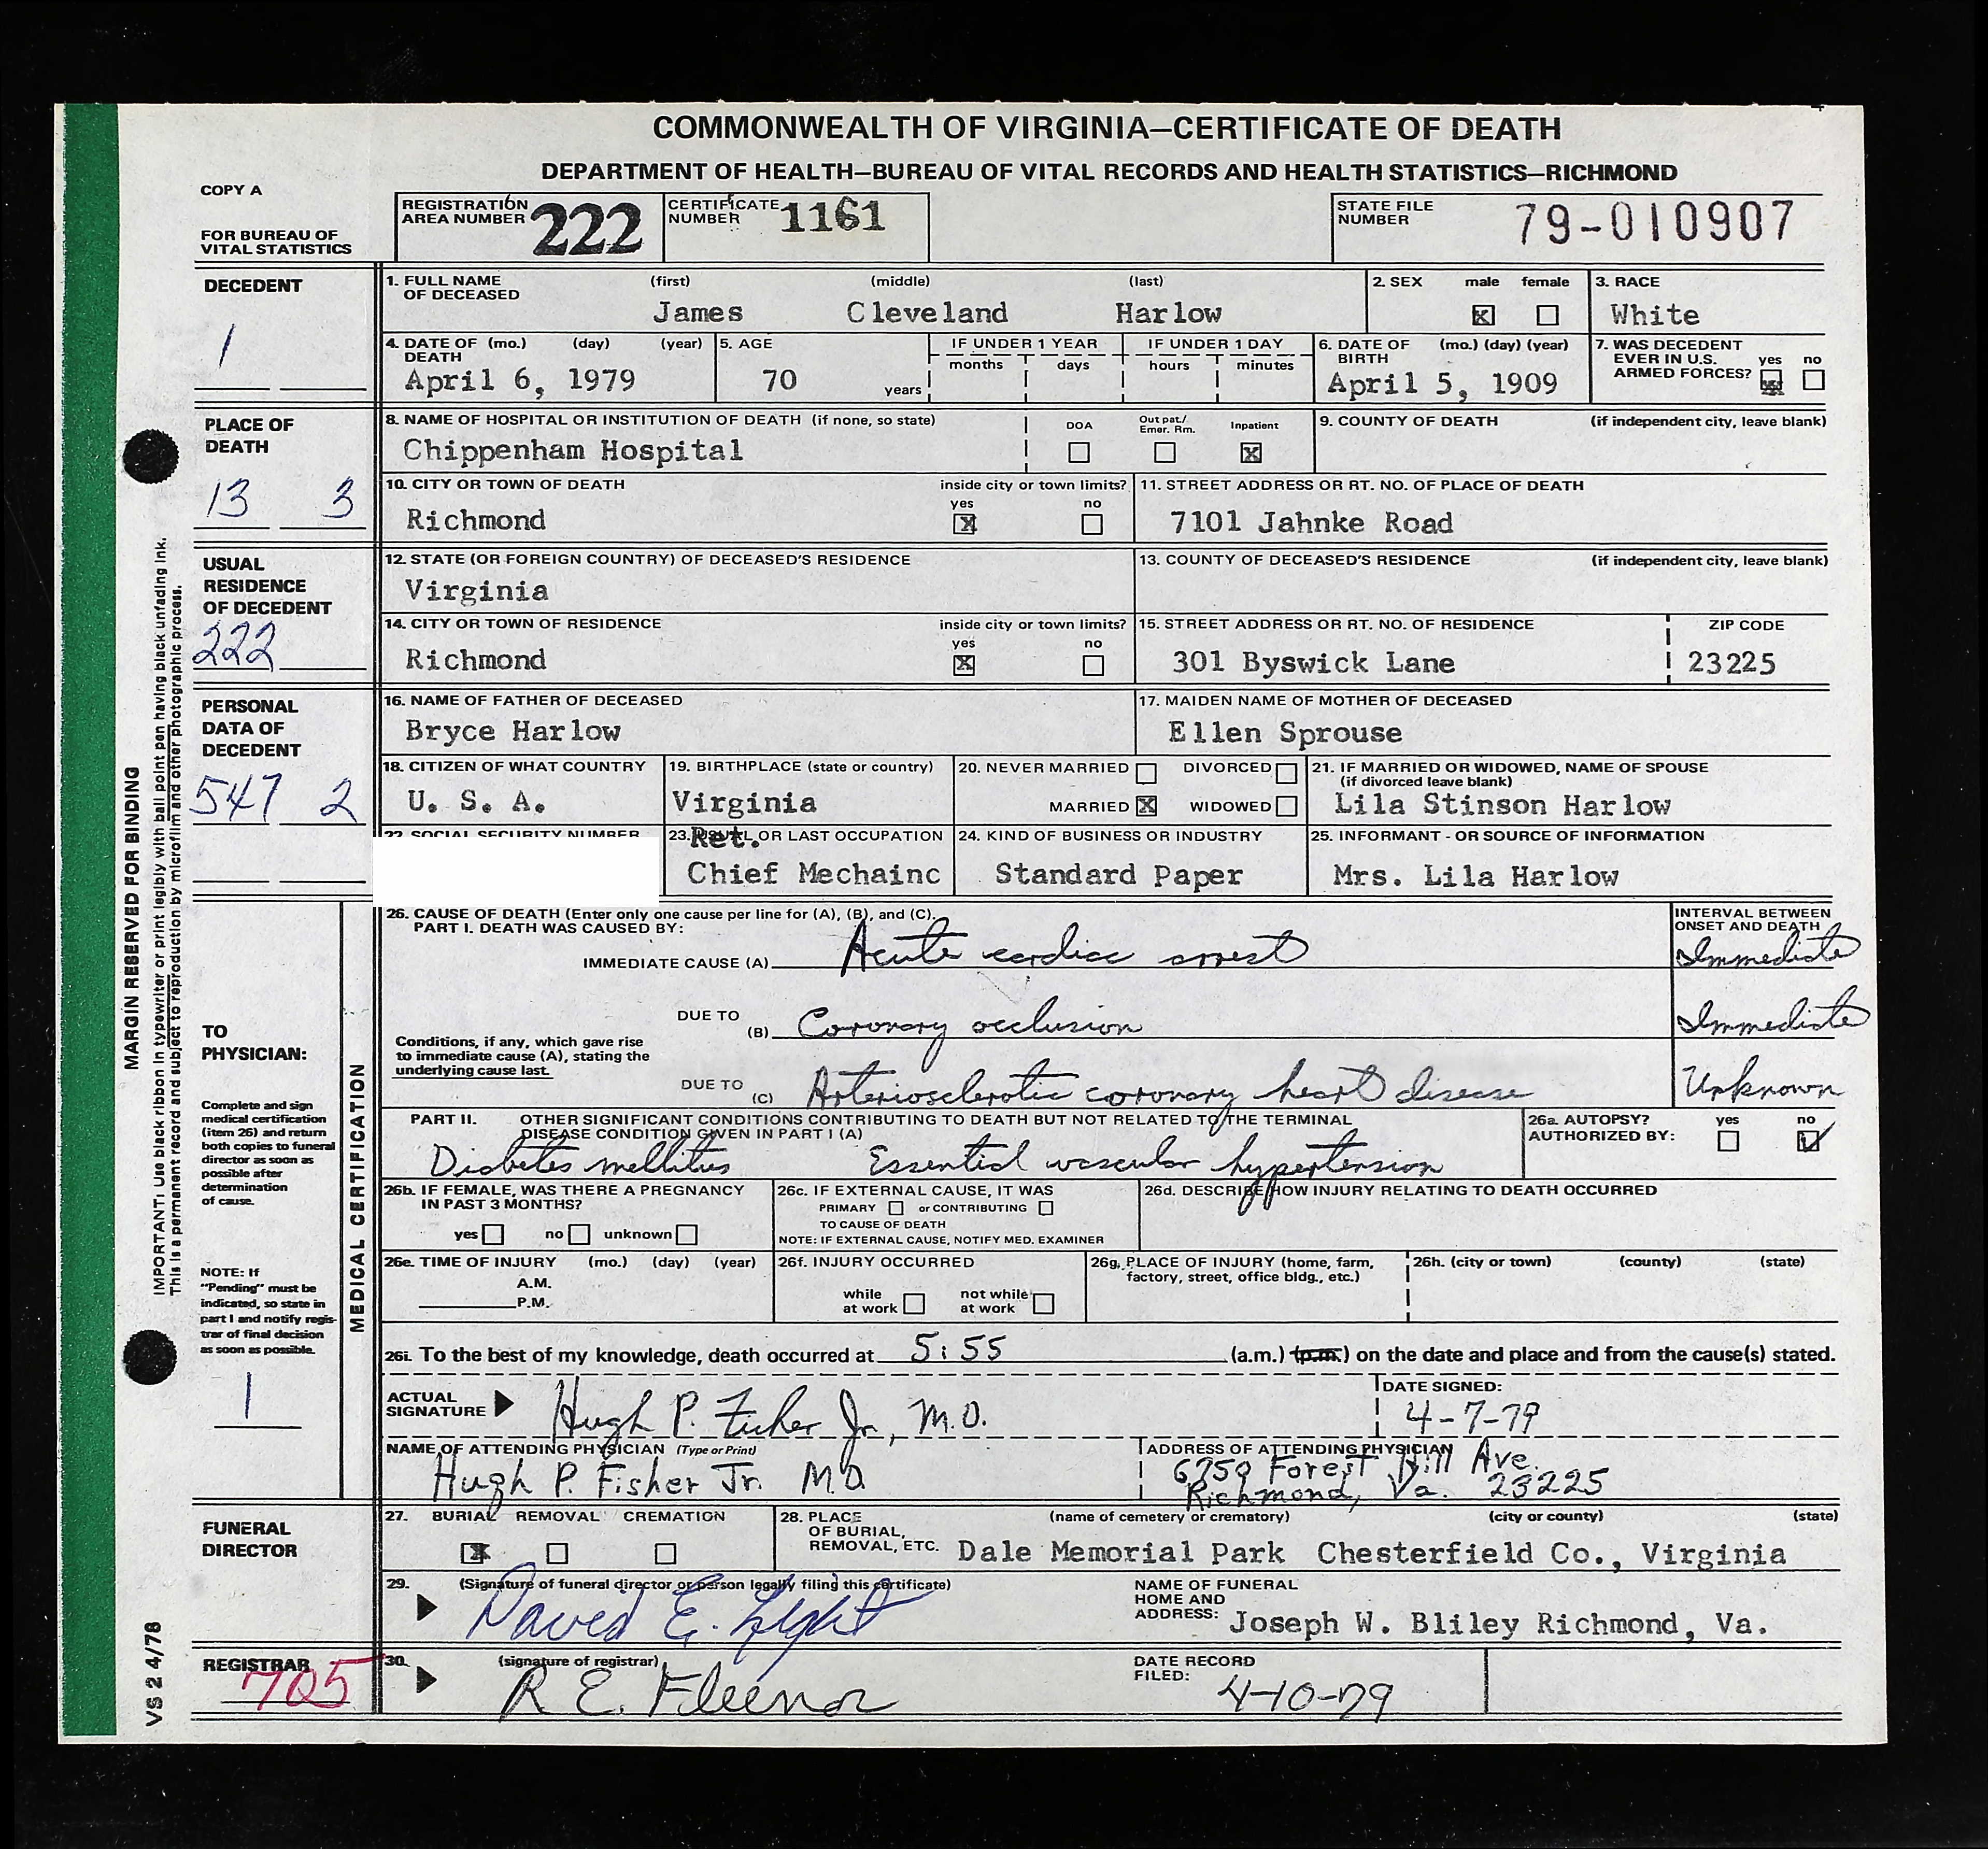 COMMONWEALTH OF VIRGINIA—CERTIFICATE OF DEATH
DEPARTMENT OF HEALTH—BUREAU OF VITAL RECORDS AND HEALTH STATISTICS—RICHMOND
COPY A
FOR BUREAU OF
VITAL STATISTICS
REGISTRATION
AREA NUMBER 222
CERTIFICATE
NUMBER 1161
STATE FILE
NUMBER 79-010907
DECEDENT
1
1. FULL NAME OF DECEASED (first) (middle) (last)
James Cleveland Harlow
2. SEX male female
X
3. RACE
White
4. DATE OF DEATH (mo.) (day) (year)
April 6, 1979
5. AGE
70 years
IF UNDER 1 YEAR
months days
IF UNDER 1 DAY
hours minutes
6. DATE OF BIRTH (mo.) (day) (year)
April 5, 1909
7. WAS DECEDENT
EVER IN U.S.
ARMED FORCES? yes no
PLACE OF
DEATH
13 3
8. NAME OF HOSPITAL OR INSTITUTION OF DEATH (if none, so state)
Chippenham Hospital
DOA Out pat./ Emer. Rm. Inpatient
X
9. COUNTY OF DEATH (if independent city, leave blank)
10. CITY OR TOWN OF DEATH inside city or town limits?
yes no
Richmond X
11. STREET ADDRESS OR RT. NO. OF PLACE OF DEATH
7101 Jahnke Road
USUAL
RESIDENCE
OF DECEDENT
222
12. STATE (OR FOREIGN COUNTRY) OF DECEASED'S RESIDENCE
Virginia
13. COUNTY OF DECEASED'S RESIDENCE (if independent city, leave blank)
14. CITY OR TOWN OF RESIDENCE inside city or town limits?
yes no
Richmond X
15. STREET ADDRESS OR RT. NO. OF RESIDENCE ZIP CODE
301 Byswick Lane 23225
PERSONAL
DATA OF
DECEDENT
547 2
16. NAME OF FATHER OF DECEASED
Bryce Harlow
17. MAIDEN NAME OF MOTHER OF DECEASED
Ellen Sprouse
18. CITIZEN OF WHAT COUNTRY
U. S. A.
19. BIRTHPLACE (state or country)
Virginia
20. NEVER MARRIED DIVORCED
MARRIED X WIDOWED
21. IF MARRIED OR WIDOWED, NAME OF SPOUSE
(if divorced leave blank)
Lila Stinson Harlow
22. SOCIAL SECURITY NUMBER
23. USUAL OR LAST OCCUPATION
Ret.
Chief Mechainc
24. KIND OF BUSINESS OR INDUSTRY
Standard Paper
25. INFORMANT - OR SOURCE OF INFORMATION
Mrs. Lila Harlow
MARGIN RESERVED FOR BINDING
IMPORTANT: Use black ribbon in typewriter or print legibly with ball point pen having black unfading ink.
This is a permanent record and subject to reproduction by microfilm and other photographic process.
TO
PHYSICIAN:
Complete and sign
medical certification
(item 26) and return
both copies to funeral
director as soon as
possible after
determination
of cause.
NOTE: If
"Pending" must be
indicated, so state in
part I and notify regis-
trar of final decision
as soon as possible.
1
MEDICAL CERTIFICATION
26. CAUSE OF DEATH (Enter only one cause per line for (A), (B), and (C).
PART I. DEATH WAS CAUSED BY:
INTERVAL BETWEEN
ONSET AND DEATH
IMMEDIATE CAUSE (A) Acute cardiac arrest Immediate
DUE TO
(B) Coronary occlusion Immediate
Conditions, if any, which gave rise
to immediate cause (A), stating the
underlying cause last.
DUE TO
(C) Arteriosclerotic coronary heart disease Unknown
PART II. OTHER SIGNIFICANT CONDITIONS CONTRIBUTING TO DEATH BUT NOT RELATED TO THE TERMINAL
DISEASE CONDITION GIVEN IN PART I (A)
Diabetes mellitus Essential vascular hypertension
26a. AUTOPSY? yes no
AUTHORIZED BY: ✓
26b. IF FEMALE, WAS THERE A PREGNANCY
IN PAST 3 MONTHS?
yes no unknown
26c. IF EXTERNAL CAUSE, IT WAS
PRIMARY or CONTRIBUTING
TO CAUSE OF DEATH
NOTE: IF EXTERNAL CAUSE, NOTIFY MED. EXAMINER
26d. DESCRIBE HOW INJURY RELATING TO DEATH OCCURRED
26e. TIME OF INJURY (mo.) (day) (year)
A.M.
P.M.
26f. INJURY OCCURRED
while at work not while at work
26g. PLACE OF INJURY (home, farm,
factory, street, office bldg., etc.)
26h. (city or town) (county) (state)
26i. To the best of my knowledge, death occurred at 5:55 (a.m.) (p.m.) on the date and place and from the cause(s) stated.
ACTUAL
SIGNATURE Hugh P. Fisher Jr., M.D.
DATE SIGNED:
4-7-79
NAME OF ATTENDING PHYSICIAN (Type or Print)
Hugh P. Fisher Jr. M.D.
ADDRESS OF ATTENDING PHYSICIAN
6750 Forest Hill Ave.
Richmond, Va. 23225
FUNERAL
DIRECTOR
27. BURIAL REMOVAL CREMATION
X
28. PLACE
OF BURIAL,
REMOVAL, ETC.
(name of cemetery or crematory) (city or county) (state)
Dale Memorial Park Chesterfield Co., Virginia
29. (Signature of funeral director or person legally filing this certificate)
David E. Light
NAME OF FUNERAL
HOME AND
ADDRESS: Joseph W. Bliley Richmond, Va.
REGISTRAR
705
30. (signature of registrar)
R E. Fleenor
DATE RECORD
FILED: 4-10-79
VS 2 4/78